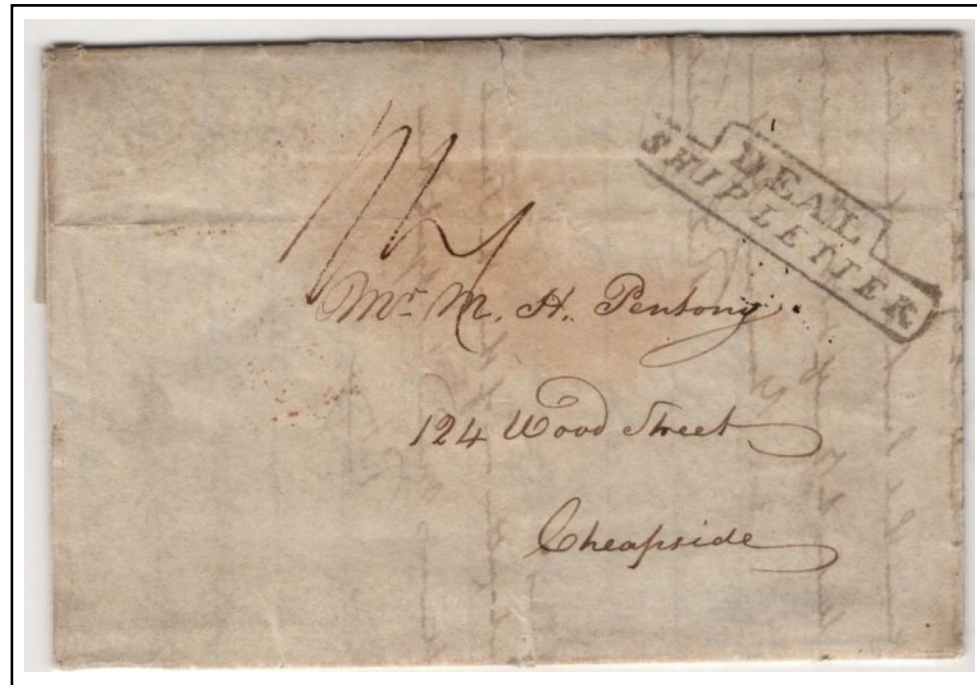 DEAL
SHIP LETTER
Mr. M. H. Pentony
124 Wood Street
Cheapside